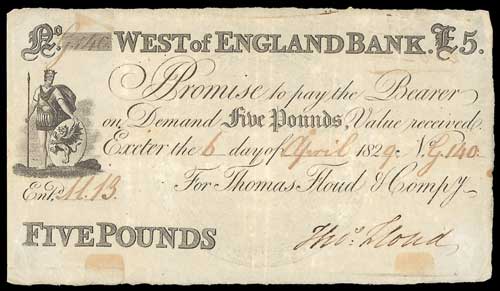 No. WEST of ENGLAND BANK. £5.
I Promise to pay the Bearer
on Demand Five Pounds, Value received
Exeter the 6 day of April 1829. No. G,140.
For Thomas Floud & Compy.
Entd. M.13.
FIVE POUNDS
Thos. Floud